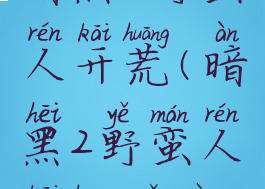 rén kāi huāng àn
人开荒(暗
hēi yě mán rén
黑2野蛮人